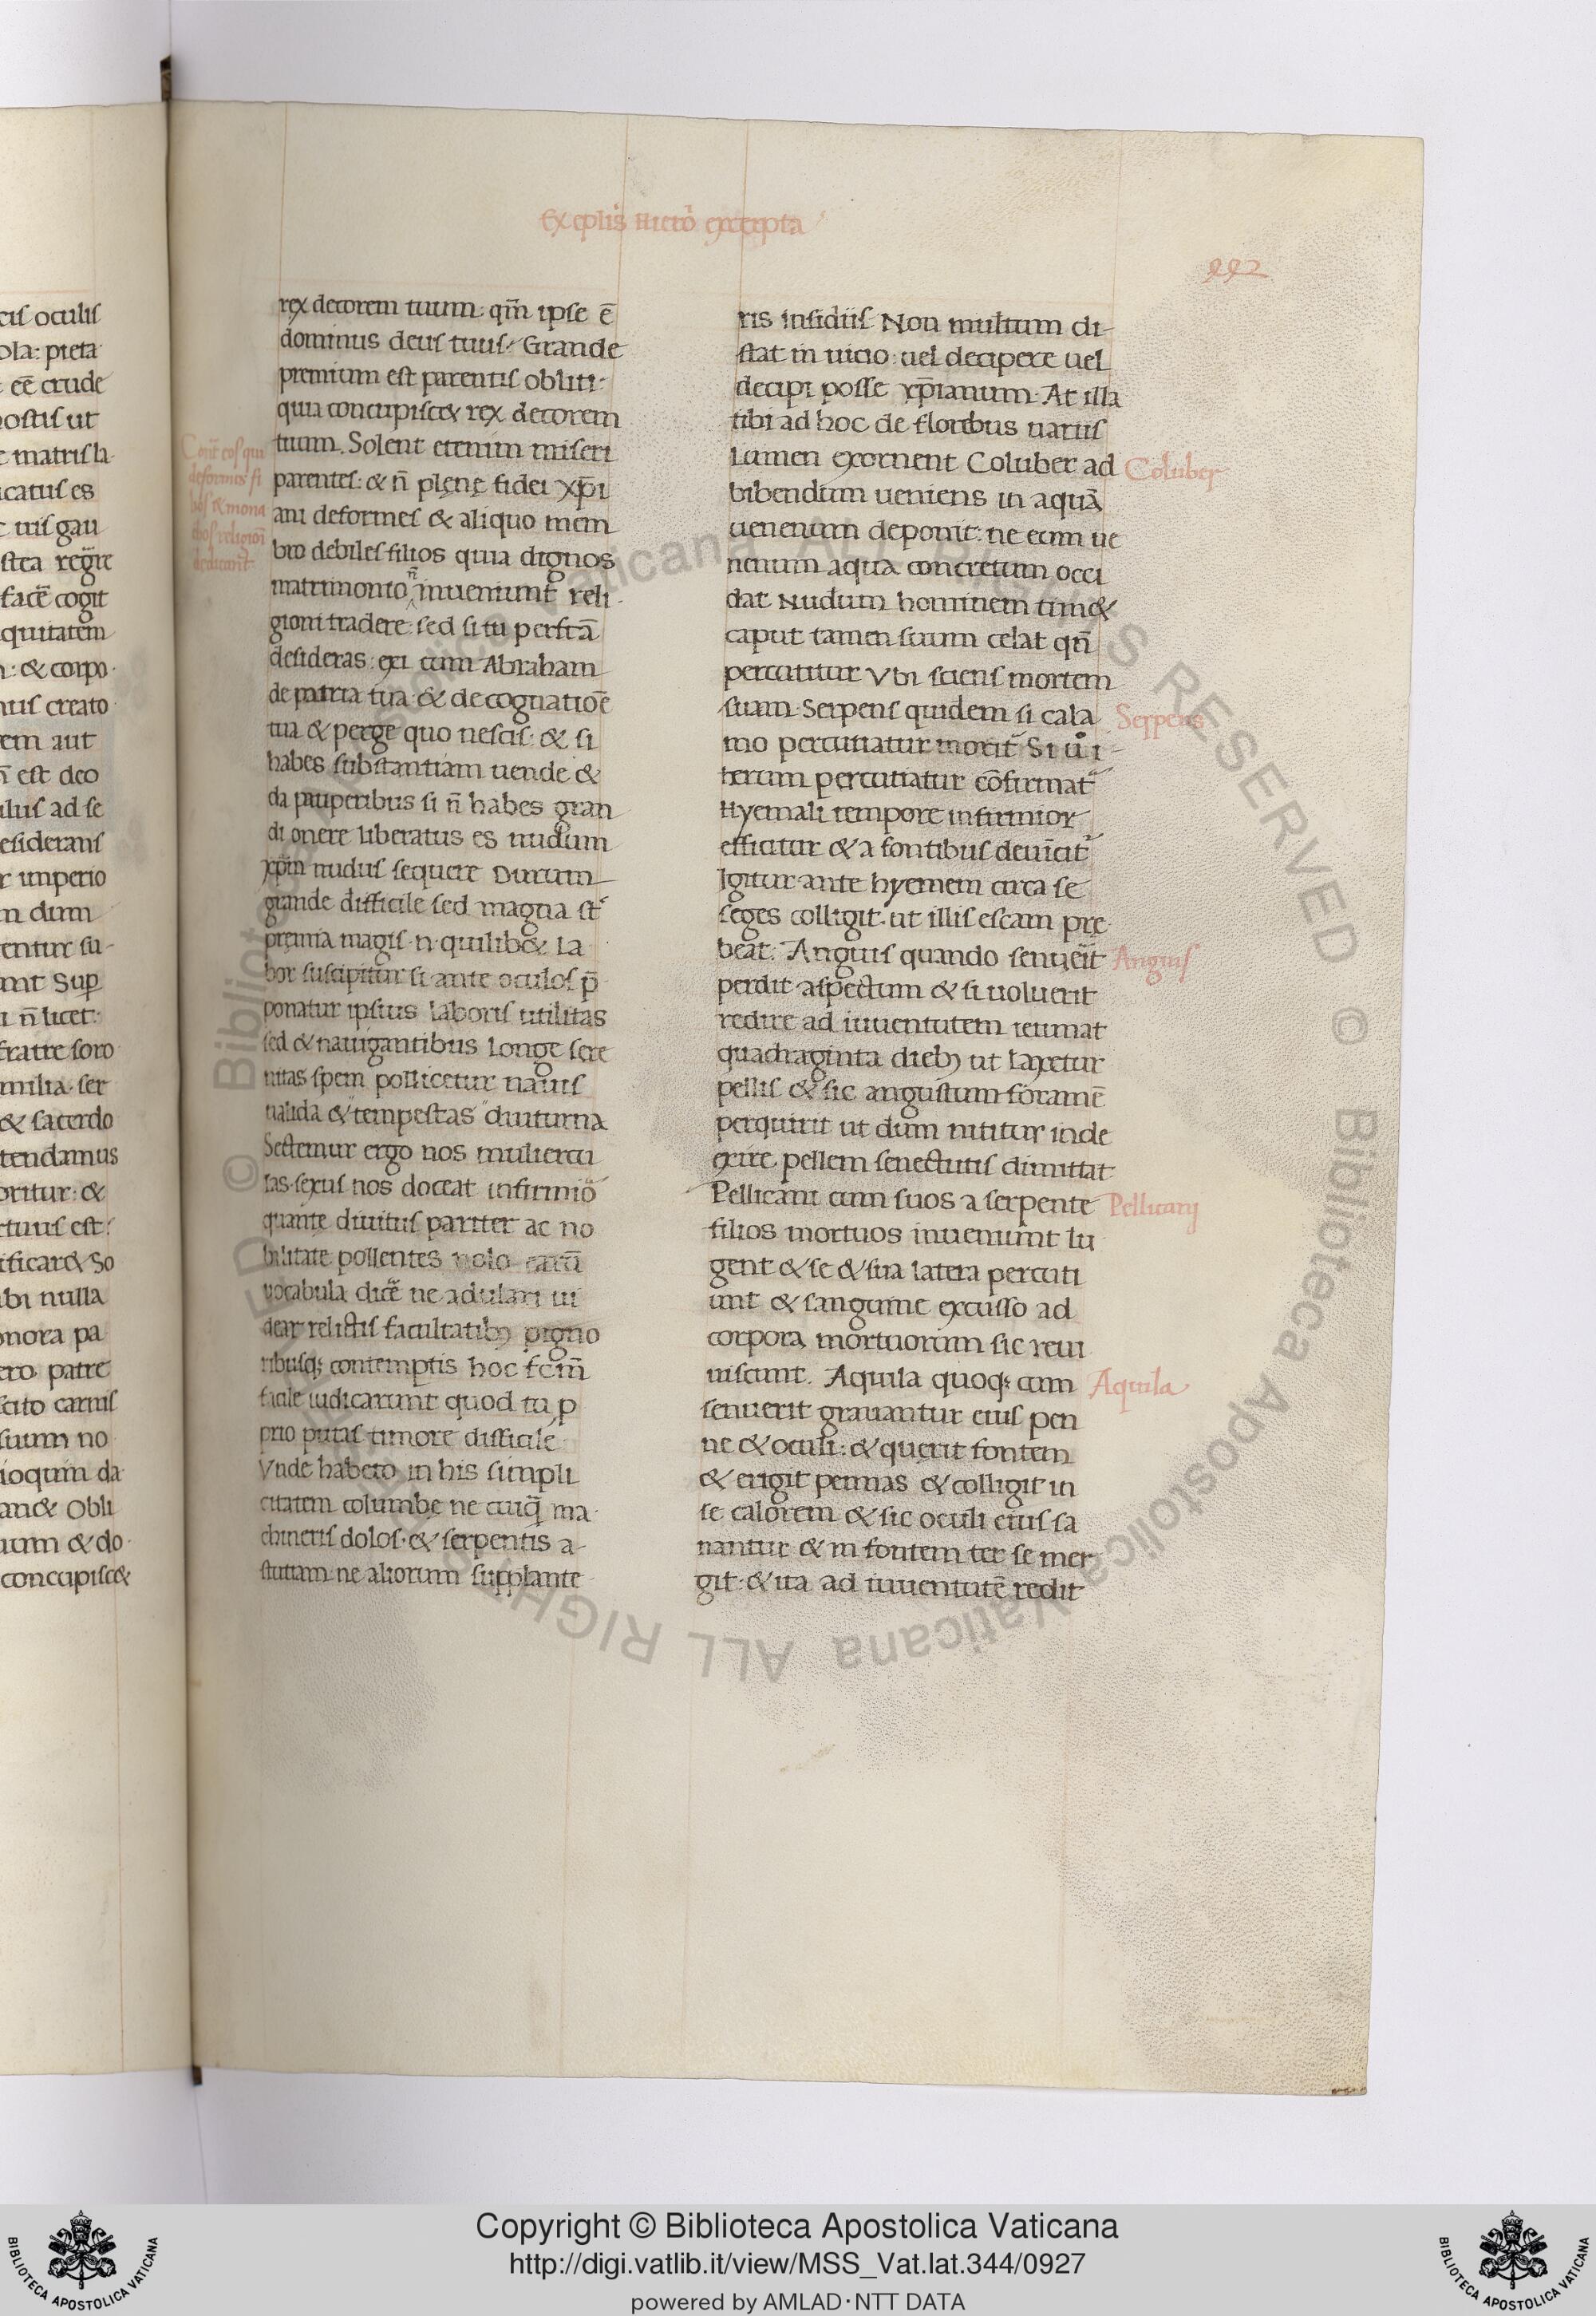 Ex eplis Hiero excerpta
992
cis oculis
ola: pieta
eē crude
postis ut
e matris la
icatus es
uis gau
stea regē
facē cogit
quitatem
n: & corpo
nus creato
em aut
n̄ est deo
ulus ad se
esiderans
r imperio
m dum
rentur su-
ant Sup
n̄ licet:
fratre soro
milia ser
& sacerdo
tendamus
oritur: &
rtuus est:
ificar& So
ibi nulla
onora pa
ero patre
scito carnis
suum no
ioquin da
and& Obli
uum & do
concupisc&
rex decorem tuum: qm̄ ipse ē
dominus deus tuus. Grande
premium est parentis obliti:
quia concupisc& rex decorem
tuum. Solent etenim miseri
parentes: & n̄ plenę fidei xp̄i
ani deformes & aliquo mem
bro debiles filios quia dignos
matrimonio n̄ inueniunt reli
gioni tradere: sed si tu perfctā
desideras: exi cum Abraham
de patria tua & de cognatiōe
tua & perge quo nescis: & si
habes substantiam uende &
da pauperibus si n̄ habes gran
di onere liberatus es nudum
xp̄m nudus sequere Durum
grande difficile sed magna st̄
premia magis n quilib& La
bor suscipitur si ante oculos p̄
ponatur ipsius laboris utilitas
sed & nauigantibus longe sere
nitas spem pollicetur nauis
ualida & tempestas diuturna
Sectemur ergo nos muliercu
las sexus nos doceat infirmiō
quantę diuitiis pariter ac no
bilitate pollentes nolo earū
uocabula dicē ne adulari ui
dear relictis facultatib; pigno
ribusq; contemptis hoc fcm̄
facile iudicarunt quod tu p
prio putas timore difficile
Vnde habeto in his simpli
citatem columbę ne cuiq̄ ma
chineris dolos & serpentis a-
stutiam ne aliorum supplante
Cont̄ eos qui
deformes fi
lios & mona
chos religion̄
dedicant̄
ris insidiis Non multum di-
stat in uicio: uel decipere uel
decipi posse xp̄ianum. At illa
tibi ad hoc de floribus uariis
Lumen exornent Coluber ad
bibendum ueniens in aquā
uenenum deponit: ne eum ue
nenum aqua concretum occi
dat Nudum hominem tim&
caput tamen suum celat qn̄
percutitur Vbi sciens mortem
suam. Serpens quidem si cala
mo percutiatur morit̄ Si ů i-
terum percutiatur cōfirmat̄
Hyemali tempore infirmior
efficitur & a fontibus deuīcit̄
Igitur ante hyemem circa se
seges colligit ut illis escam prę
beat. Anguis quando senuerit
perdit aspectum & si uoluerit
redire ad iuuentutem ieiunat
quadraginta dieb; ut laxetur
pellis & sic angustum foramē
perquirit ut dum nititur inde
exire pellem senectutis dimittat
Pellicani cum suos a serpente
filios mortuos inuenīunt lu
gent & se & sua latera percuti
unt & sanguine excusso ad
corpora mortuorum sic reui
uiscunt. Aquila quoq; cum
senuerit grauantur eius pen
ne & oculi: & querit fontem
& erigit pennas & colligit in
se calorem & sic oculi eius sa
nantur & in fontem ter se mer
git: & ita ad iuuentutē redit
Coluber
Serpens
Anguis
Pellicanj
Aquila
© Biblioteca Apostolica Vaticana ALL RIGHTS RESERVED © Biblioteca Apostolica Vaticana ALL RIGHTS RESERVED
Copyright © Biblioteca Apostolica Vaticana
http://digi.vatlib.it/view/MSS_Vat.lat.344/0927
powered by AMLAD·NTT DATA
BIBLIOTECA APOSTOLICA VATICANA
BIBLIOTECA APOSTOLICA VATICANA